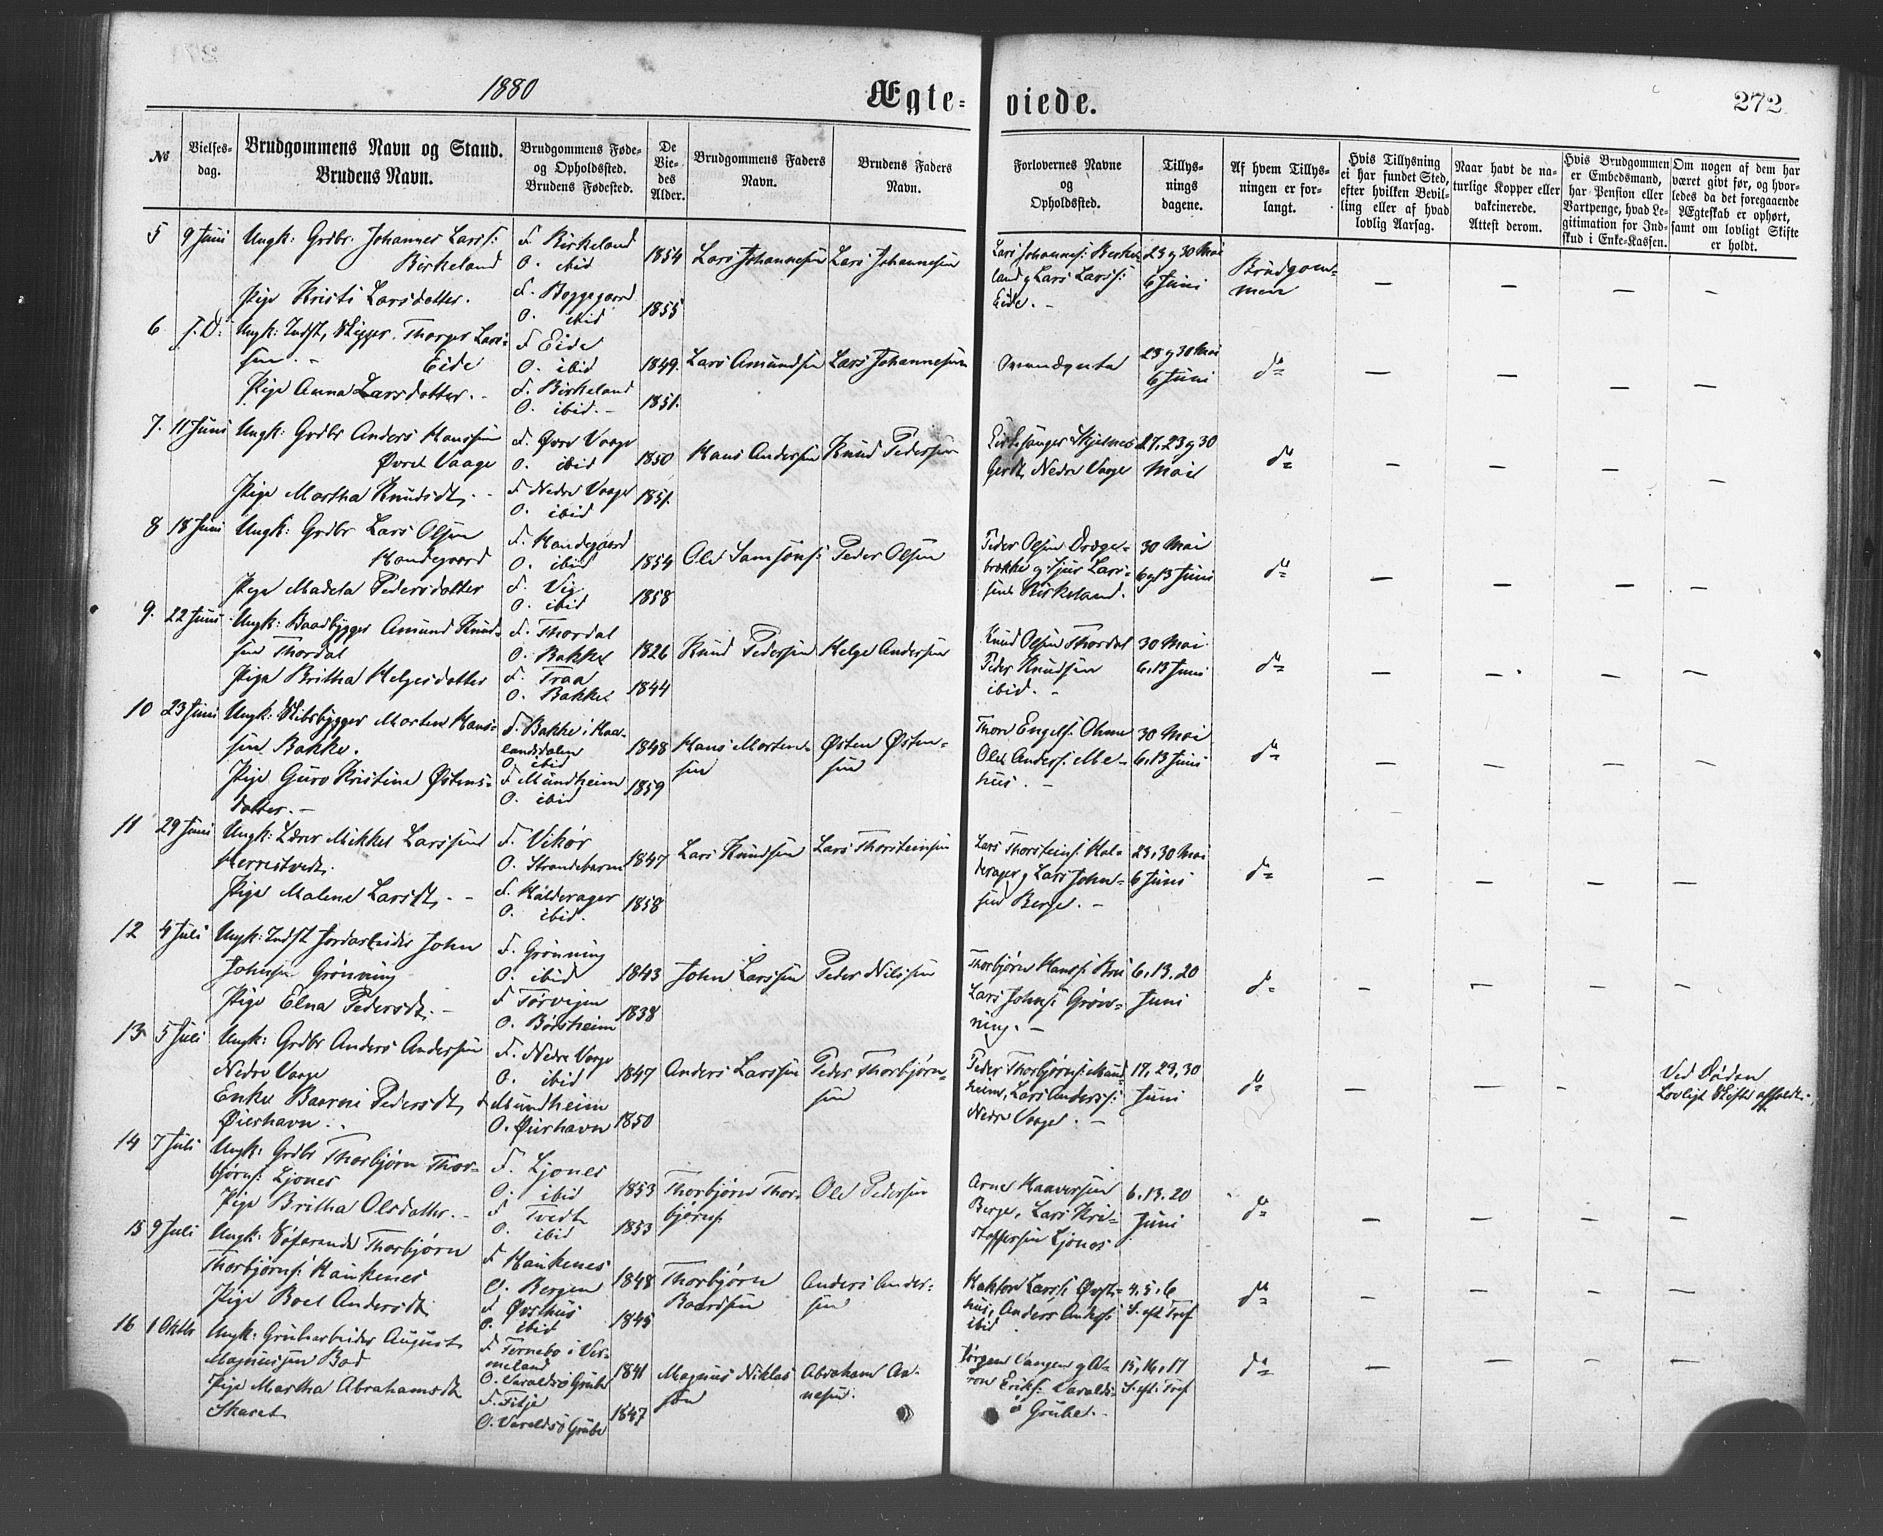 1880
Ægte-
viede.
272
№
Vielses-
dag.
Brudgommens Navn og Stand.
Brudens Navn.
Brudgommens Føde-
og Opholdssted.
Brudens Fødested.
De
Vie-
des
Alder.
Brudgommens Faders
Navn.
Brudens Faders
Navn.
Forlovernes Navne
og
Opholdssted.
Tillys-
nings
dagene.
Af hvem Tillys-
ningen er for-
langt.
Hvis Tillysning
ei har fundet Sted,
efter hvilken Bevil-
ling eller af hvad
lovlig Aarsag.
Naar havt de na-
turlige Kopper eller
vakcinerede.
Attest derom.
Hvis Brudgommen
er Embedsmand,
har Pension eller
Vartpenge, hvad Le-
gitimation for Ind-
skud i Enke-Kassen.
Om nogen af dem har
været givt før, og hvor-
ledes da det foregaaende
Ægteskab er ophørt,
samt om lovligt Skifte
er holdt.
5 9 Juni Ungk: Grdbr. Johannes Larss:
Birkeland
Pige Kristi Larsdatter.
F. Birkeland
O. ibid
F. Boggegaard
O. ibid
1854
1855
Lars Johannesen
Lars Johannesen
Lars Johanness: Birke-
land og Lars Larss:
Eide. -
23 og 30 Mai
6 Juni
Brudgom-
men
— — — —
6 s. D: Ungk: Indst, Skipper Thorger Lars-
sen. - Eide
Pige Anna Larsdatter. -
F. Eide
O. ibid
F. Birkeland
O. ibid. -
1849.
1851.
Lars Amundsen
Lars Johannesen
Ovennævnte
23 og 30 Mai
6 Juni
do
— — — —
7. 11 Juni Ungk: Grdbr Anders Hanssen
Øvre Vaage
Pige Martha Knudsdt, -
F. Øvre Vaage
O. ibid
F. Nedre Vaage
O. ibid
1850
1851.
Hans Andersen
Knud Pedersen
Kirkesanger Skjelnes
Gerdt Nedre Vaage
17, 23 og 30
Mai
do
— — — —
8 18 Juni Ungk: Grdbr Lars Olsen
Handegaard
Pige Madela Pedersdatter
F. Handegaard
O. ibid
F. Vig
O. ibid
1854
1858
Ole Samsons:
Peder Olsen
Peder Olsen Drage-
brække og Sjur Lars-
sen Birkeland.
30 Mai
6 og 13 Juni
do
— — — —
9. 22 Juni Ungk: Baadbygger Amund Knud-
sen Thordal
Pige Britha Helgesdatter
F. Thordal
O. Bakke
F. Traa
O. Bakke
1826
1844
Knud Pedersen
Helge Andersen
Knud Olsen Thordal
Peder Knudsen
ibid. -
30 Mai
6, 13 Juni
do
— — — —
10 23 Juni Ungk: Skibsbygger Morten Hans-
sen Bakke.
Pige Guro Kristine Østens-
datter. -
F. Bakke i Haa-
landsdalen
O. ibid
F. Mundheim
O. ibid
1848
1859
Hans Morten-
sen
Østen Østen-
sen
Thore Engels:
Ole Anders: Me-
hus. -
30 Mai
6, 13 Juni
do
— — — —
11 29 Juni Ungk: Lærer Mikkel Larssen
Herrestvedt.
Pige Malene Larsdt, -
F. Vikør
O. Strandebarm
F. Halderager
O. ibid.
1847
1858
Lars Knudsen
Lars Thorsteinsen
Lars Thorsteins: Hal-
derager og Lars John-
sen Berge. -
23, 30 Mai
6 Juni
do
— — — —
12 4 Juli Ungk: Indst Jordarbeider John
Johnsen Grønning
Pige Elna Pedersdt. -
F. Grønning
O. ibid
F. Tørvigen
O. Børsheim
1843
1838
John Larssen
Peder Nilssen
Thorbjørn Hanss:
Lars Johns: Grøn-
ning. -
6, 13, 20
Juni
do
— — — —
13 5 Juli Ungk: Grdbr Anders Andersen
Nedre Vaage
Enke Baarni Pedersdt,
Øierhavn. -
F. Nedre Vaage
O. ibid
F Mundheim
O. Øierhavn
1847
1850
Anders Larssen
Peder Thorbjørn-
sen
Peder Thorbjørns: Mund-
heim, Lars Anderss:
Nedre Vaage. -
17, 23, 30
Juni
do
— — —
Ved Døden
Lovligt Skifte affholdt.
14 7 Juli Ungk: Grdbr Thorbjørn Thor-
bjørns: Ljones
Pige Britha Olsdatter. -
F. Ljones
O. ibid
F Tvedt
O. ibid
1853
1853
Thorbjørn Thor-
bjørns.
Ole Pedersen
Arne Haaversen
Berge, Lars Kri-
stoffersen Ljones
6, 13, 20
Juni
do
— — — —
15 9 Juli Ungk: Søfarende Thorbjørn
Thorbjørns: Haukenes
Pige Boel Andersdt.
F Haukenes
O. Bergen
F Øvsthus
O. ibid
1848
1845
Thorbjørn
Baardsen
Anders Ander-
sen
Haktor Larss: Øvst-
hus, Anders Anderss:
ibid
4, 5, 6
S. eft Tref
do
— — — —
16 1 Oktbr Ungk: Grubearbeider August
Magnussen Bod
Pige Martha Abrahamsdt
Skaret
F Fernebo i Ver-
meland
O. Varaldsø Grube
F. Fitje
O. Varaldsø Grube
1841
1847
Magnus Niklas-
søn
Abraham An-
nesen.
Jørgen Vangen og A-
ron Eriks: Varalds-
ø Grube. -
15, 16, 17
S. eft. Tref
do
— — — —